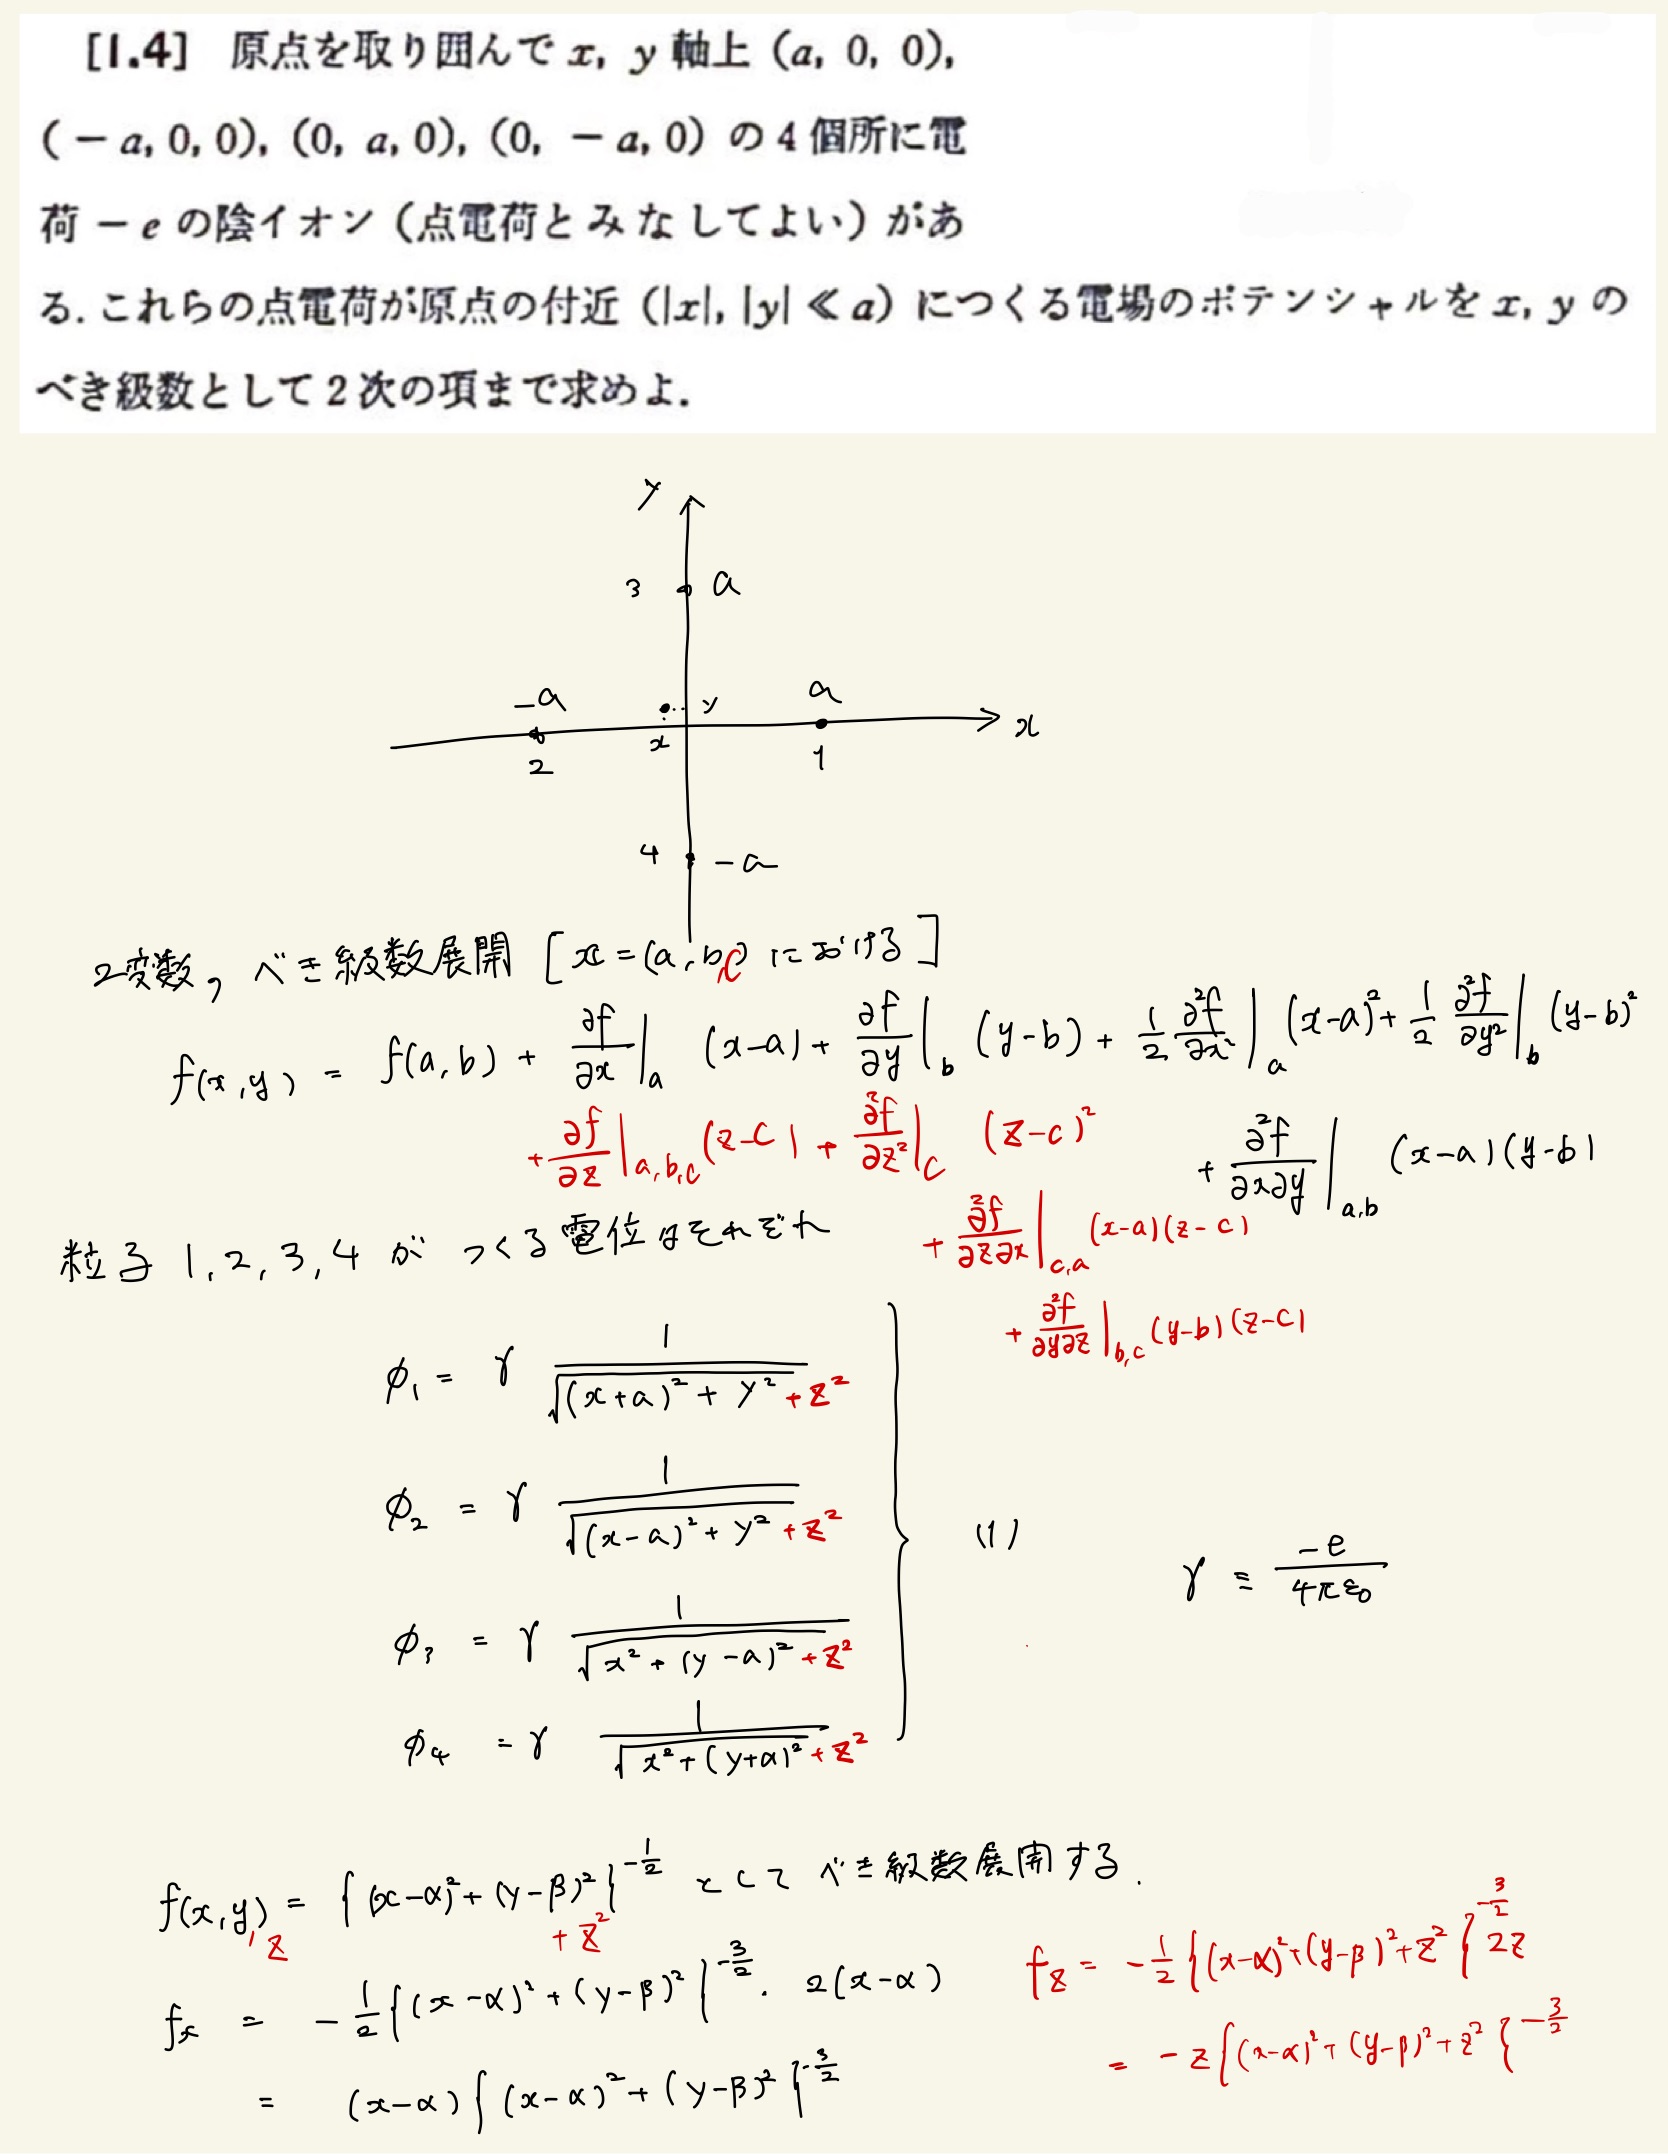 [1.4] 原点を取り囲んで x, y 軸上 (a, 0, 0),
(−a, 0, 0), (0, a, 0), (0, −a, 0) の4個所に電
荷 −e の陰イオン（点電荷とみなしてよい）があ
る. これらの点電荷が原点の付近 (|x|, |y| ≪ a) につくる電場のポテンシャルを x, y の
べき級数として2次の項まで求めよ.
y
3 a
−a y a x
2 x 1
4 −a
2変数のべき級数展開 [x = (a, b, c) における]
f(x, y) = f(a, b) + ∂f/∂x|a (x−a) + ∂f/∂y|b (y−b) + 1/2 ∂²f/∂x²|a (x−a)² + 1/2 ∂²f/∂y²|b (y−b)²
+ ∂f/∂z|a,b,c (z−c) + ∂²f/∂z²|c (z−c)² + ∂²f/∂x∂y|a,b (x−a)(y−b)
+ ∂²f/∂z∂x|c,a (x−a)(z−c)
+ ∂²f/∂y∂z|b,c (y−b)(z−c)
粒子 1, 2, 3, 4 が つくる電位はそれぞれ
φ₁ = γ 1/√((x+a)² + y² + z²)
φ₂ = γ 1/√((x−a)² + y² + z²)
(1) γ ≡ −e/4πε₀
φ₃ = γ 1/√(x² + (y−a)² + z²)
φ₄ = γ 1/√(x² + (y+a)² + z²)
f(x, y, z) = {(x−α)² + (y−β)² + z²}^(−1/2) として べき級数展開する.
fx = −1/2 {(x−α)² + (y−β)²}^(−3/2) · 2(x−α)
= (x−α){(x−α)² + (y−β)²}^(−3/2)
fz = −1/2 {(x−α)² + (y−β)² + z²}^(−3/2) 2z
= −z{(x−α)² + (y−β)² + z²}^(−3/2)